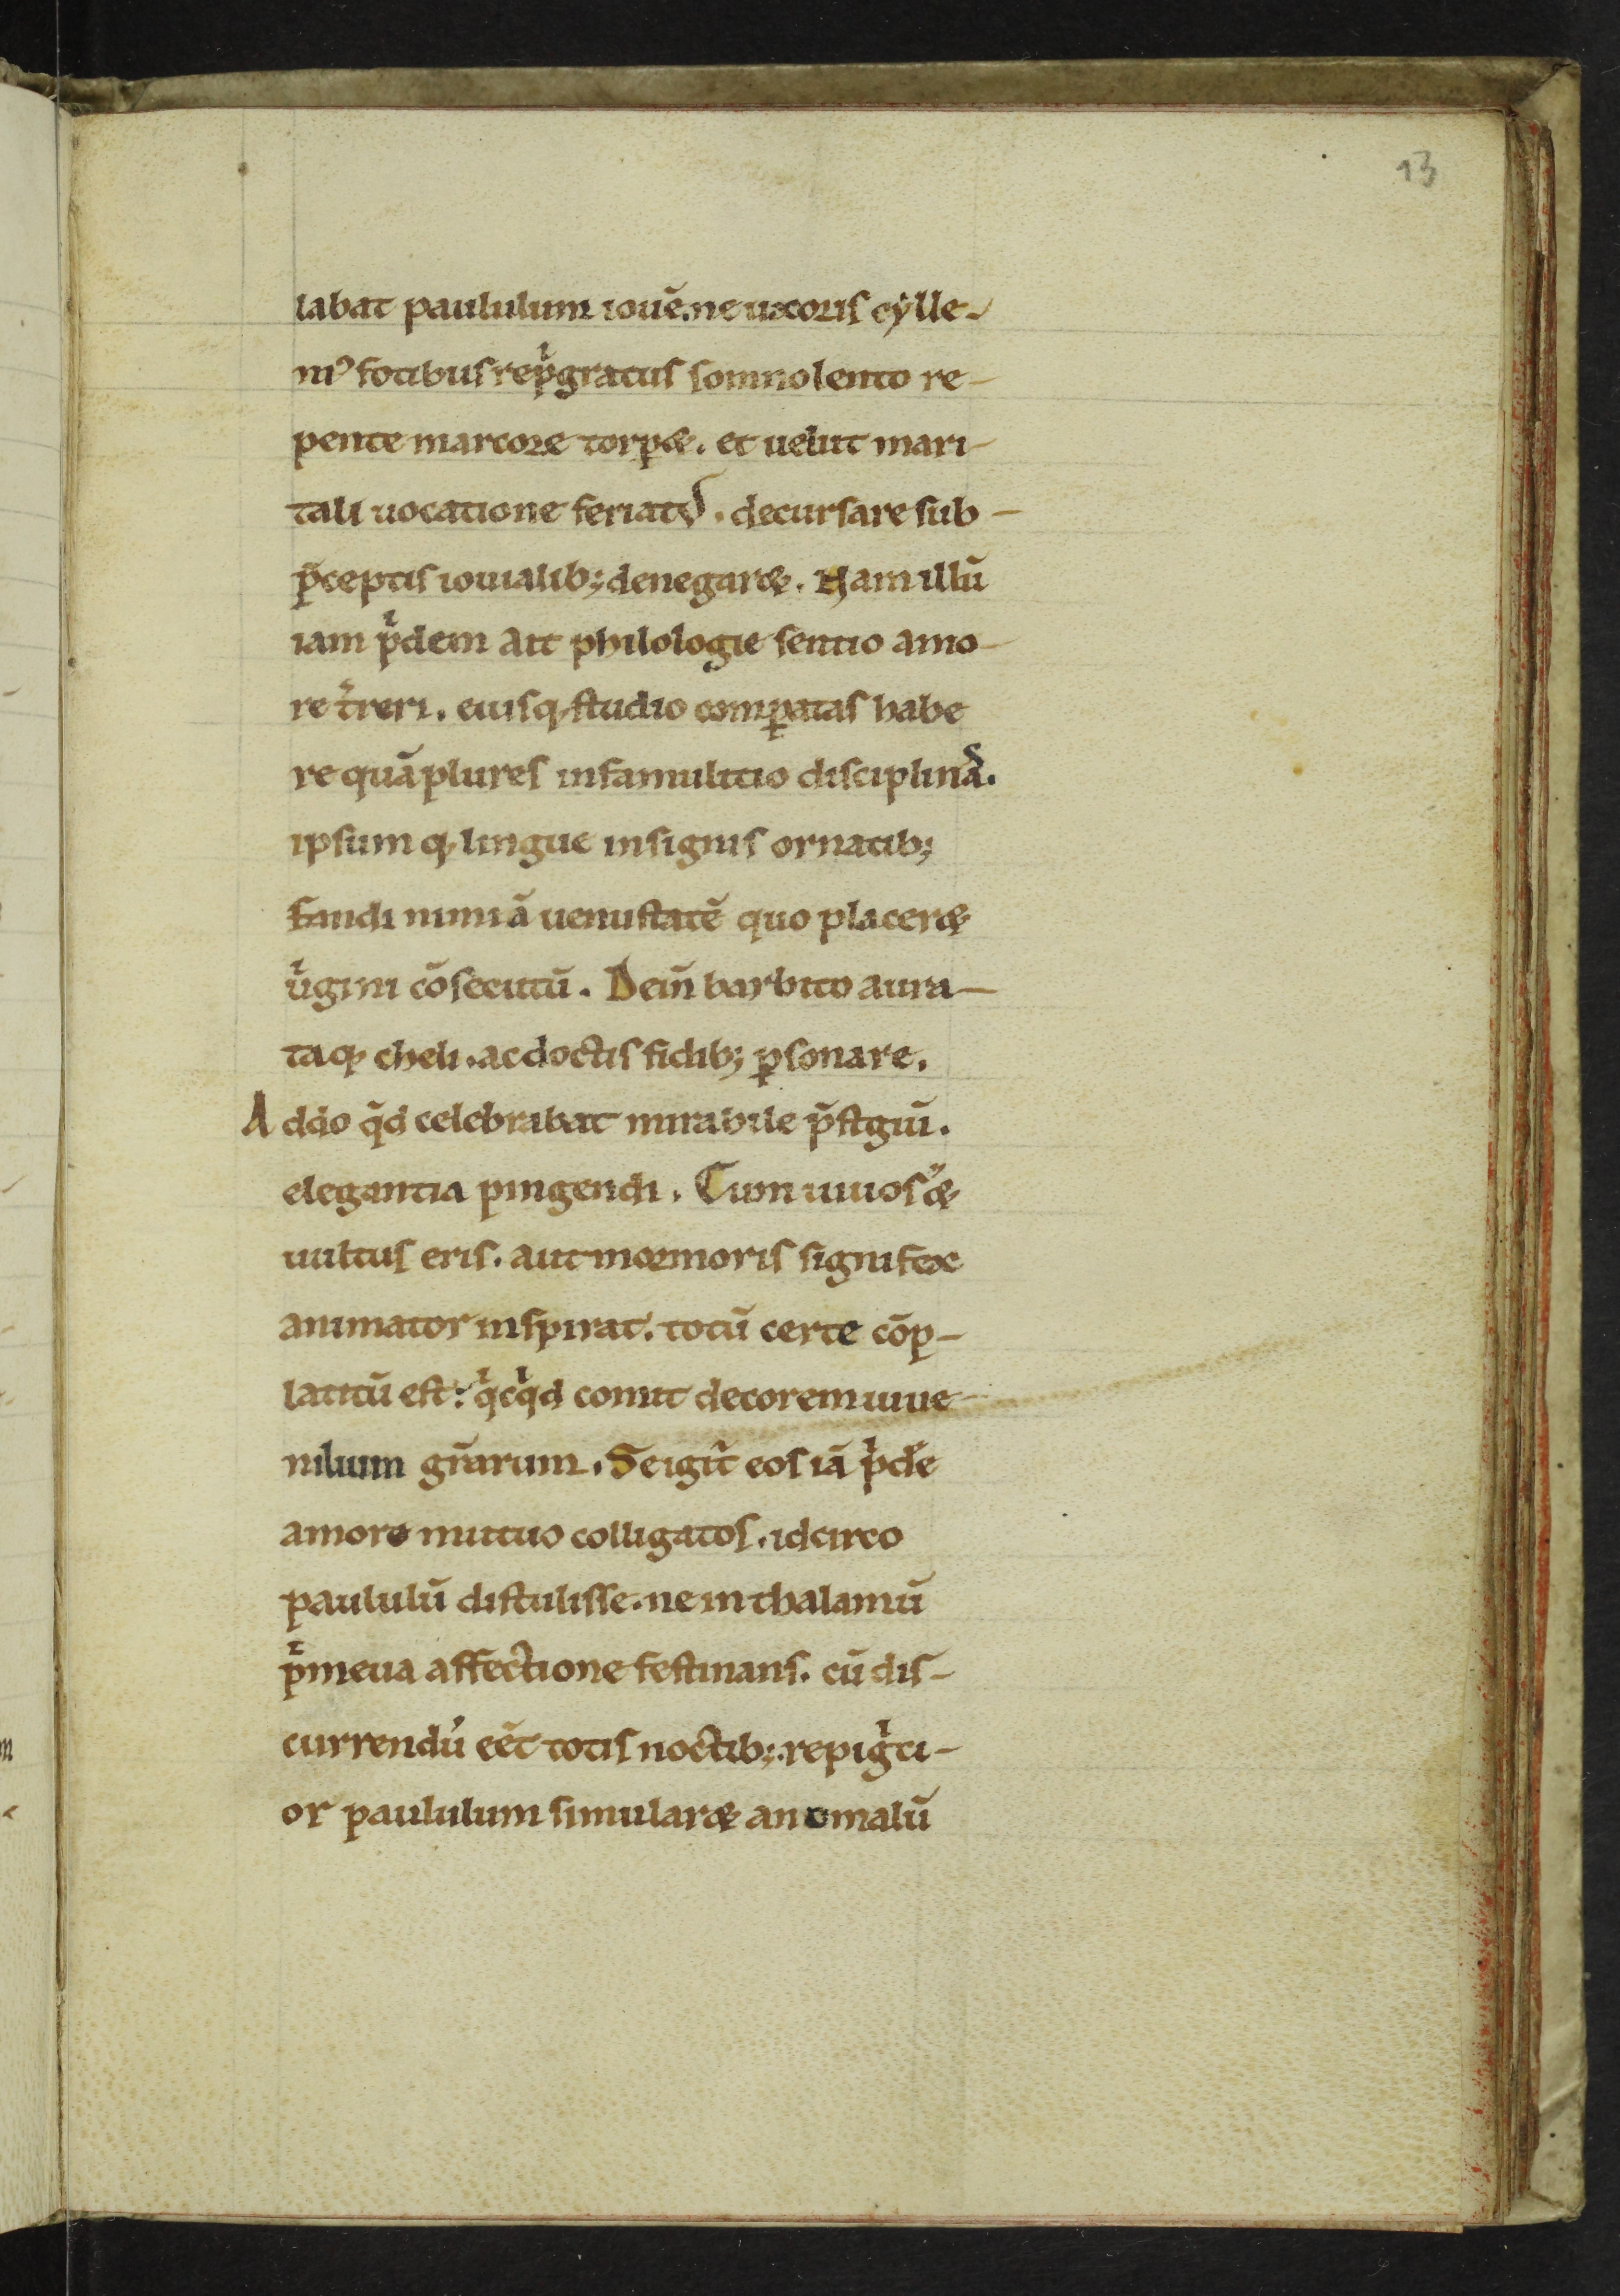 13
labat paululum iouē. ne uxoris cylle-
ni⁹ fotibus rep̍gratus somnolento re-
pente marcore torpæ. et uelut mari-
tali uocatione feriatꝰ. decursare sub-
p̄ceptis iouialib; denegaræ. Nam illū
iam p̍dem ait philologie sentio amo-
re t̄reri. eiusq; studio comꝑatas habe
re quāplures infamulitio disciplinas.
ipsum q; lingue insignis ornatib;
fandi nimiā uenustatē quo placeræ
u̍gini cōsecutū. Dein̄ barbito aura-
taq; cheli. ac doctis fidib; ꝑsonare.
Addo q̄d celebrabat mirabile p̄stgiū.
elegantia pingendi. Cum uiuos ̄æ
uultus eris. aut mormoris signifex
animator inspirat. totū certe cōp-
latitū est: q̍cq̍d comit decorem iuue-
nilium gr̄arum. Se igit̄ eos iā p̍dē
amore mutuo colligatos. idcirco
paululū distulisse. ne in thalamū
p̍meua affectione festinans. cū dis-
currendū eēt totis noctib;. repig̍ti-
or paululum simularæ anomalū